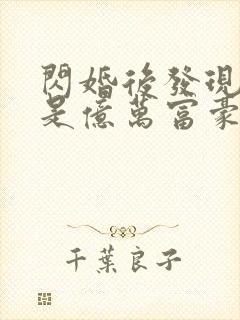 閃婚後發現
是億萬富豪
千葉良子